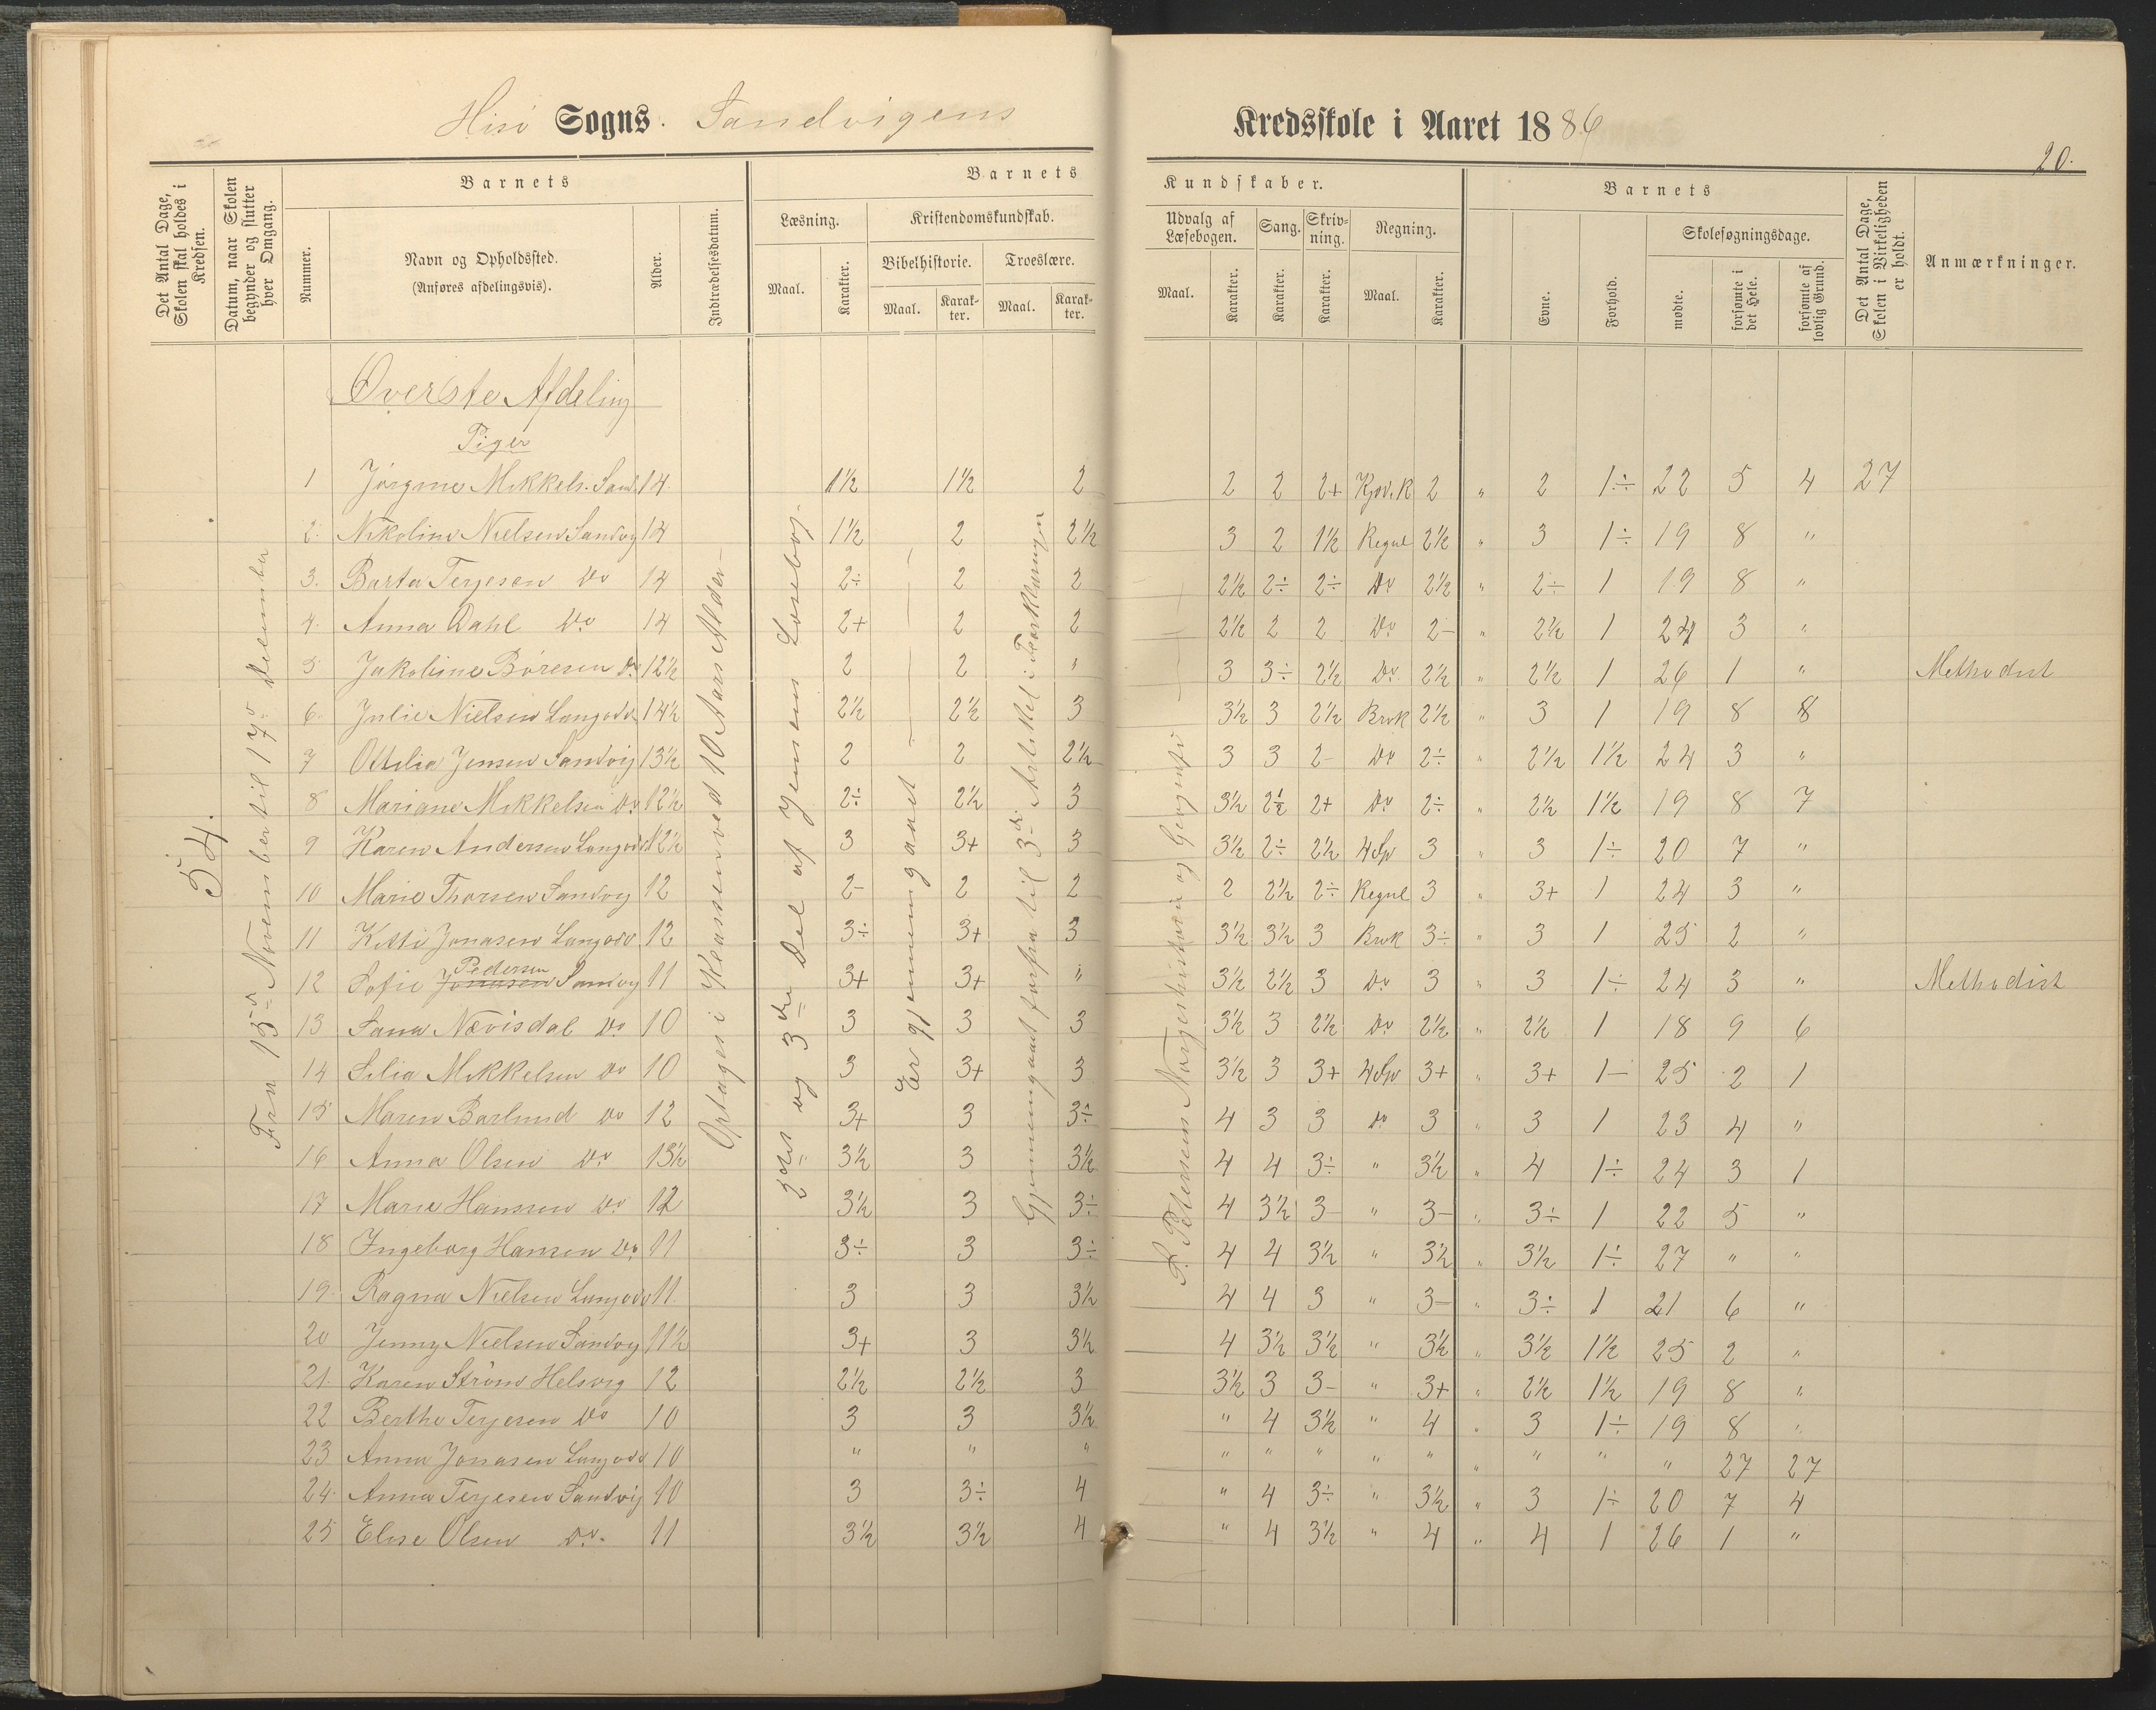 Hisö Sogns Sandvigens Kredsskole i Aaret 1886
20.
Det Antal Dage, Skolen skal holdes i Kredsen.
Datum, naar Skolen begynder og slutter hver Omgang.
Barnets
Nummer.
Navn og Opholdssted.
(Anføres afdelingsvis).
Alder.
Indtrædelsesdatum.
Barnets
Læsning.
Maal.
Karakter.
Kristendomskundskab.
Bibelhistorie.
Maal.
Karakter.
Troeslære.
Maal.
Karakter.
Kundskaber.
Udvalg af Læsebogen.
Maal.
Karakter.
Sang.
Karakter.
Skrivning.
Karakter.
Regning.
Maal.
Karakter.
Barnets
Evne.
Forhold.
Skolesøgningsdage.
mødte.
forsømte i det Hele.
forsømte af lovlig Grund.
Det Antal Dage, Skolen i Virkeligheden er holdt.
Anmærkninger.
54.
Fra 15de November til 17de Desember
Optages i Klassen ved 10 Aars Alder
2den og 3die Del af Jensens Læsebog.
Er gjennemgaaet
Gjennemgaaet forfra til 3die Artikkel i Forklaringen
P. Petersens Norgeshistorie og Geografi
Øverste Afdeling
Piger
1 Jörgine Mikkels. Sand. 14 1½ 1½ 2 2 2 2+ Kjæd.R 2 " 2 1÷ 22 5 4 27
2 Nikoline Nielsen Sandvg 14 1½ 2 2½ 3 2 1½ Regul 2½ " 3 1÷ 19 8 "
3. Berta Terjesen Do 14 2÷ 2 2 2½ 2÷ 2÷ Do 2½ " 2÷ 1 19 8 "
4. Anna Dahl Do 14 2+ 2 2 2½ 2 2 Do 2- " 2½ 1 24 3 "
5 Jakobine Börresen Do 12½ 2 2 " 3 3÷ 2½ Do 2½ " 2½ 1 26 1 " Methodist
6. Julie Nielsen Langodd 14½ 2½ 2½ 3 3½ 3 2½ Brøk 2½ " 3 1 19 8 8
7 Ottilia Jensen Sandvig 13½ 2 2 2½ 3 3 2- Do 2÷ " 2½ 1½ 24 3 "
8 Mariane Mikkelsen Do 12½ 2÷ 2½ 3 3½ 2½ 2+ Do 2÷ " 2½ 1½ 19 8 7
9 Karen Andersen Langodd 12½ 3 3+ 3 3½ 2÷ 2½ 4Sp 3 " 3 1÷ 20 7 "
10 Marie Thorsen Sandvg 12 2- 2 2 2 2½ 2÷ Regul 3 " 3+ 1 24 3 "
11 Kitti Jonasen Langodd 12 3÷ 3+ 3 3½ 3½ 3 Brøk 3÷ " 3 1 25 2 "
12 Sofie Jonasen Pedersen Sandvg 11 3+ 3+ " 3½ 2½ 3 Do 3 " 3 1÷ 24 3 " Methodist
13 Sana Nævisdal Do 10 3 3 3 3½ 3 2½ Do 2½ " 2½ 1 18 9 6
14 Silia Mikkelsen Do 10 3 3+ 3 3½ 3 3+ 4Sp 3+ " 3+ 1- 25 2 1
15 Maren Barlund Do 12 3+ 3 3÷ 4 3 3 Do 3 " 3 1 23 4 "
16 Anna Olsen Do 13½ 3½ 3 3½ 4 4 3÷ " 3½ " 4 1÷ 24 3 1
17 Marie Hanssen Do 12 3½ 3 3÷ 4 3½ 3- " 3- " 3÷ 1 22 5 "
18 Ingeborg Hansen Do 11 3÷ 3 3÷ 4 4 3½ " 3½ " 3½ 1÷ 27 " "
19. Ragna Nielsen Langodd 11 3 3 3½ 4 4 3 " 3- " 3÷ 1 21 6 "
20 Jenny Nielsen Sandvg 11½ 3+ 3 3½ 4 3½ 3½ " 3½ " 3½ 1½ 25 2 "
21. Karen Ström Helsvig 12 2½ 2½ 3 3½ 3 3- " 3+ " 2½ 1½ 19 8 "
22 Berthe Terjesen Do 10 3 3 3½ " 4 3½ " 4 " 3 1÷ 19 8 "
23 Anna Jonasen Langodd 10 " " " " " " " " " " " " 27 27
24. Anna Terjesen Sandvig 10 3 3÷ 4 " 4 3÷ " 3½ " 3 1÷ 20 7 4
25 Elise Olsen Do. 11 3½ 3½ 4 " 4 3½ " 4 " 4 1 26 1 "